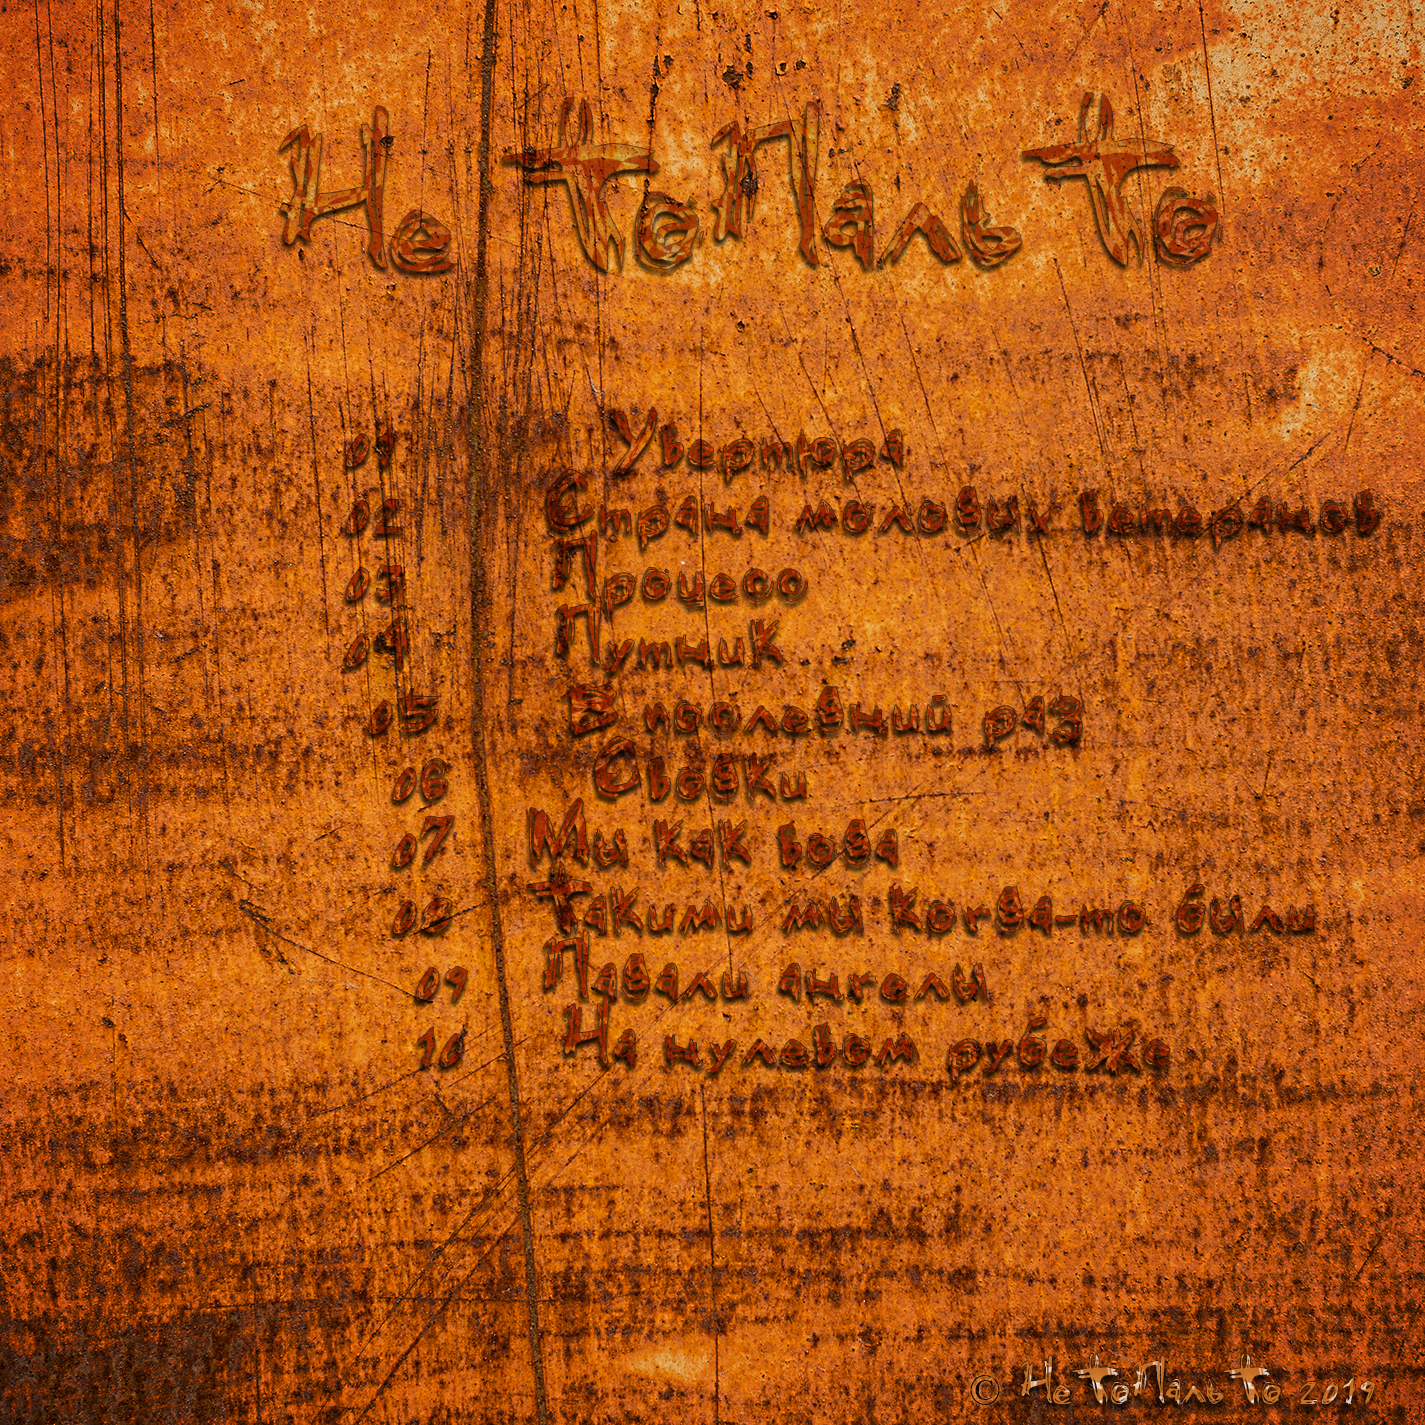 Не ТоПаль То
01 Увертюра
02 Страна молодых ветеранов
03 Процесс
04 Путник
05 В последний раз
06 Сводки
07 Мы как вода
08 Такими мы когда-то были
09 Падали ангелы
10 На нулевом рубеже
© Не ТоПаль То 2019